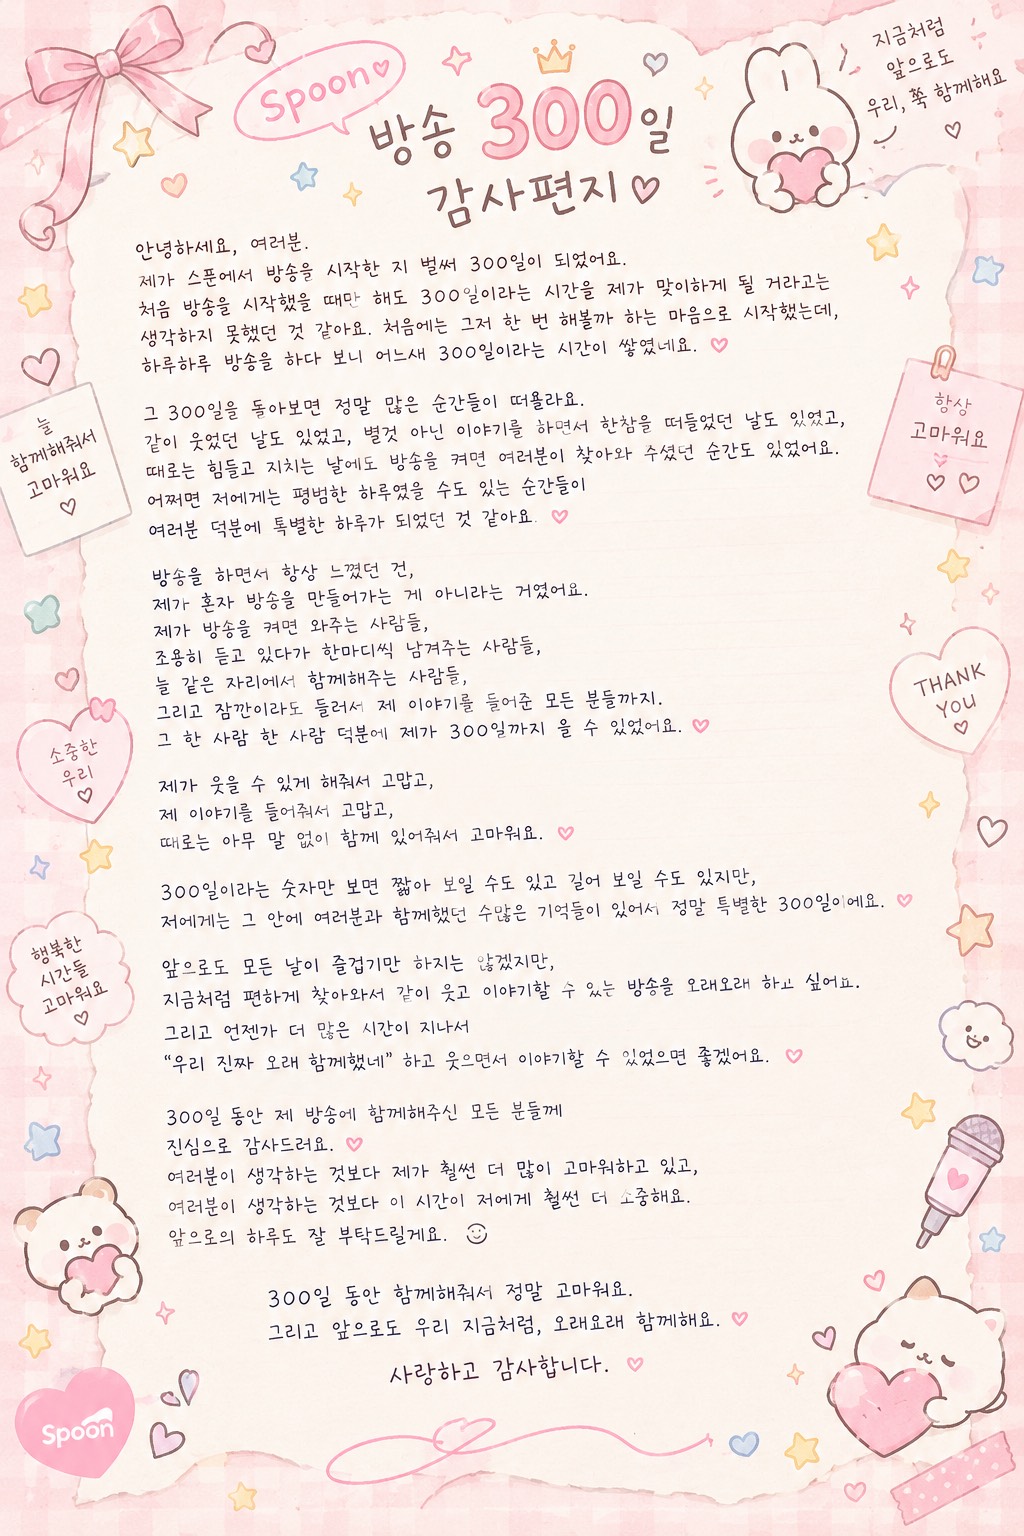 Spoon
방송 300일
감사편지
지금처럼
앞으로도
우리, 쭉 함께해요
안녕하세요, 여러분.
제가 스푼에서 방송을 시작한 지 벌써 300일이 되었어요.
처음 방송을 시작했을 때만 해도 300일이라는 시간을 제가 맞이하게 될 거라고는
생각하지 못했던 것 같아요. 처음에는 그저 한 번 해볼까 하는 마음으로 시작했는데,
하루하루 방송을 하다 보니 어느새 300일이라는 시간이 쌓였네요.
그 300일을 돌아보면 정말 많은 순간들이 떠욜라요.
같이 웃었던 날도 있었고, 별것 아닌 이야기를 하면서 한참을 떠들었던 날도 있었고,
때로는 힘들고 지치는 날에도 방송을 켜면 여러분이 찾아와 주셨던 순간도 있었어요.
어쩌면 저에게는 평범한 하루였을 수도 있는 순간들이
여러분 덕분에 특별한 하루가 되었던 것 같아요.
방송을 하면서 항상 느꼈던 건,
제가 혼자 방송을 만들어가는 게 아니라는 거였어요.
제가 방송을 켜면 와주는 사람들,
조용히 듣고 있다가 한마디씩 남겨주는 사람들,
늘 같은 자리에서 함께해주는 사람들,
그리고 잠깐이라도 들러서 제 이야기를 들어준 모든 분들까지.
그 한 사람 한 사람 덕분에 제가 300일까지 올 수 있었어요.
제가 웃을 수 있게 해줘서 고맙고,
제 이야기를 들어줘서 고맙고,
때로는 아무 말 없이 함께 있어줘서 고마워요.
300일이라는 숫자만 보면 짧아 보일 수도 있고 길어 보일 수도 있지만,
저에게는 그 안에 여러분과 함께했던 수많은 기억들이 있어서 정말 특별한 300일이에요.
앞으로도 모든 날이 즐겁기만 하지는 않겠지만,
지금처럼 편하게 찾아와서 같이 웃고 이야기할 수 있는 방송을 오래오래 하고 싶어요.
그리고 언젠가 더 많은 시간이 지나서
“우리 진짜 오래 함께했네” 하고 웃으면서 이야기할 수 있었으면 좋겠어요.
300일 동안 제 방송에 함께해주신 모든 분들께
진심으로 감사드려요.
여러분이 생각하는 것보다 제가 훨씬 더 많이 고마워하고 있고,
여러분이 생각하는 것보다 이 시간이 저에게 훨씬 더 소중해요.
앞으로의 하루도 잘 부탁드릴게요.
300일 동안 함께해줘서 정말 고마워요.
그리고 앞으로도 우리 지금처럼, 오래요래 함께해요.
사랑하고 감사합니다.
늘
함께해줘서
고마워요
소중한
우리
행복한
시간들
고마워요
항상
고마워요
THANK
YOU
Spoon